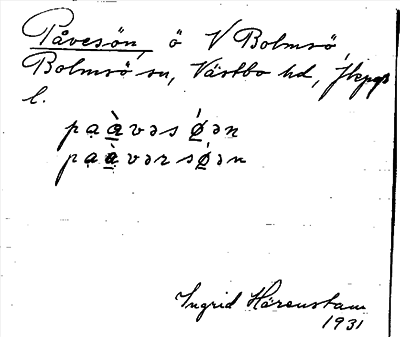 Påvesön, ö V Bolmsö,
Bolmsö sn, Västbo hd, Jkpgs
l.
pạạ̀vəsǿən
pạạ̀vərsǿən
Ingrid Härenstam
1931